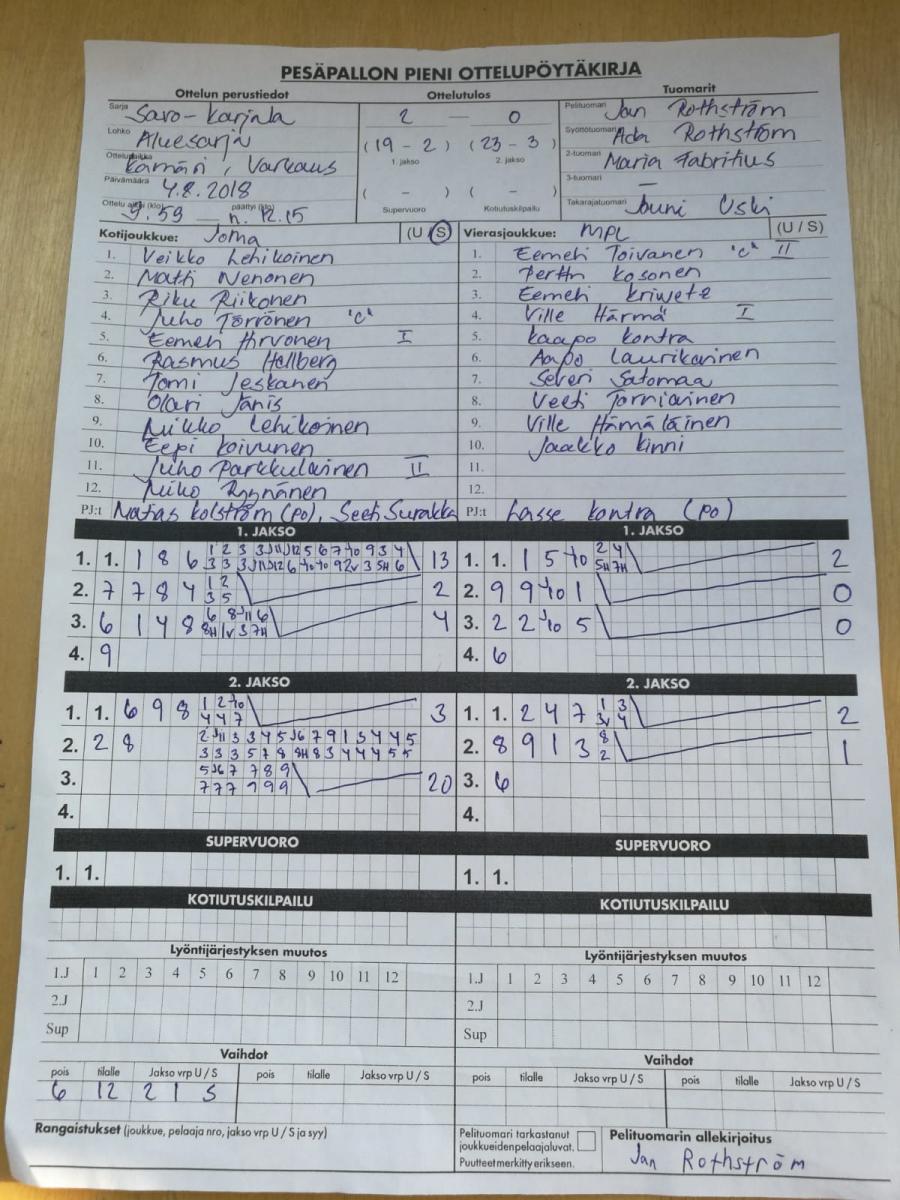 PESÄPALLON PIENI OTTELUPÖYTÄKIRJA
Ottelun perustiedot Ottelutulos Tuomarit
Sarja Savo-Karjala 2 — 0 Pelituomari Jan Rothström
Lohko Aluesarja (19 - 2) (23 - 3) Syöttötuomari Ada Rothström
Ottelupaikka Kämäri, Varkaus 1. jakso 2. jakso 2-tuomari Maria Fabritius
Päivämäärä 4.8.2018 ( - ) ( - ) 3-tuomari —
Ottelu alkoi (klo) 9.59 — päättyi (klo) n. 12.15 Supervuoro Kotiutuskilpailu Takarajatuomari Jouni Uski
Kotijoukkue: Joma (U / S) Vierasjoukkue: MPL (U / S)
1. Veikko Lehikoinen 1. Eemeli Toivanen "C" II
2. Matti Nenonen 2. Perttu Kosonen
3. Riku Riikonen 3. Eemeli Kriwetz
4. Juho Törrönen "C" 4. Ville Härmä I
5. Eemeli Hirvonen I 5. Kaapo Kontra
6. Rasmus Hallberg 6. Aapo Laurikainen
7. Tomi Jeskanen 7. Severi Satomaa
8. Olavi Jänis 8. Veeti Torniainen
9. Mikko Lehikoinen 9. Ville Hämäläinen
10. Eepi Koivunen 10. Jaakko Kinni
11. Juho Parkkulainen II 11.
12. Miko Ryynänen 12.
PJ:t Matias Kolström (PO), Seeti Surakka PJ:t Lasse Kontra (PO)
1. JAKSO 1. JAKSO
1. 1. 1 8 6 13 1. 1. 1 5 10 2 4 2
5H 7H
2. 7 7 8 4 1 2 2 2. 9 9 10 1 0
3 5
3. 6 1 4 8 6 8 J11 6 4 3. 2 2 10 5 0
8H 1V 3 7H
4. 9 4. 6
2. JAKSO 2. JAKSO
1. 1. 6 9 8 1 2 10 3 1. 1. 2 4 7 1 3 2
4 4 7 3V 4
2. 2 8 2 J11 3 3 4 5 J6 7 9 1 3 4 4 5 2. 8 9 1 3 8 1
3 3 3 5 7 8 8H 8 3 4 4 4 5 5 2
3. 5 J6 7 7 8 9 20 3. 6
7 7 7 9 9 9
4. 4.
SUPERVUORO SUPERVUORO
1. 1. 1. 1.
KOTIUTUSKILPAILU KOTIUTUSKILPAILU
Lyöntijärjestyksen muutos Lyöntijärjestyksen muutos
1.J 1 2 3 4 5 6 7 8 9 10 11 12 1.J 1 2 3 4 5 6 7 8 9 10 11 12
2.J 2.J
Sup Sup
Vaihdot Vaihdot
pois tilalle Jakso vrp U / S pois tilalle Jakso vrp U / S pois tilalle Jakso vrp U / S pois tilalle Jakso vrp U / S
6 12 2 1 S
Rangaistukset (joukkue, pelaaja nro, jakso vrp U / S ja syy) Pelituomari tarkastanut Pelituomarin allekirjoitus
joukkueiden pelaajaluvat.
Puutteet merkitty erikseen. Jan Rothström